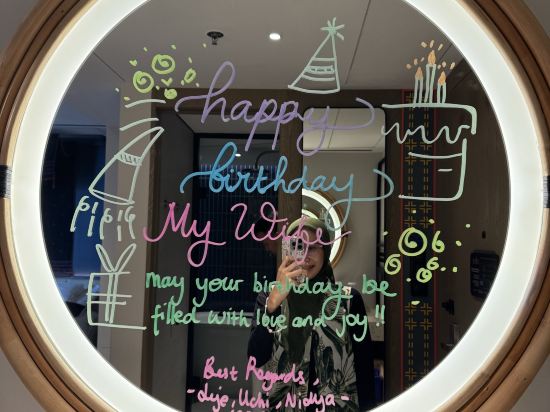 happy
birthday
My Wife
may your birthday be
filled with love and joy !!
Best Regards,
Uchi, Nidya -